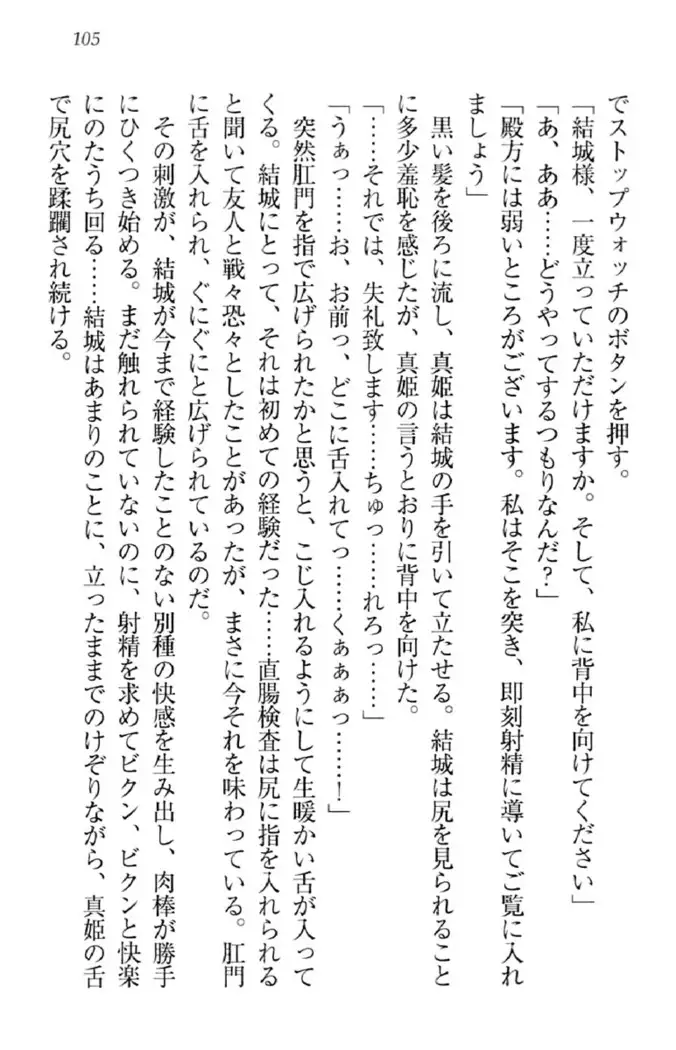 105
でストップウォッチのボタンを押す。
「結城様、一度立っていただけますか。そして、私に背中を向けてください」
「あ、ああ……どうやってするつもりなんだ?」
「殿方には弱いところがございます。私はそこを突き、即刻射精に導いてご覧に入れ
ましょう」
黒い髪を後ろに流し、真姫は結城の手を引いて立たせる。結城は尻を見られること
に多少羞恥を感じたが、真姫の言うとおりに背中を向けた。
「……それでは、失礼致します……ちゅっ……れろっ……」
「うぁっ……お、お前っ、どこに舌入れてっ……くぁぁぁっ……!」
突然肛門を指で広げられたかと思うと、こじ入れるようにして生暖かい舌が入って
くる。結城にとって、それは初めての経験だった……直腸検査は尻に指を入れられる
と聞いて友人と戦々恐々としたことがあったが、まさに今それを味わっている。肛門
に舌を入れられ、ぐにぐにと広げられているのだ。
その刺激が、結城が今まで経験したことのない別種の快感を生み出し、肉棒が勝手
にひくつき始める。まだ触れられていないのに、射精を求めてビクン、ビクンと快楽
にのたうち回る……結城はあまりのことに、立ったままでのけぞりながら、真姫の舌
で尻穴を蹂躙され続ける。